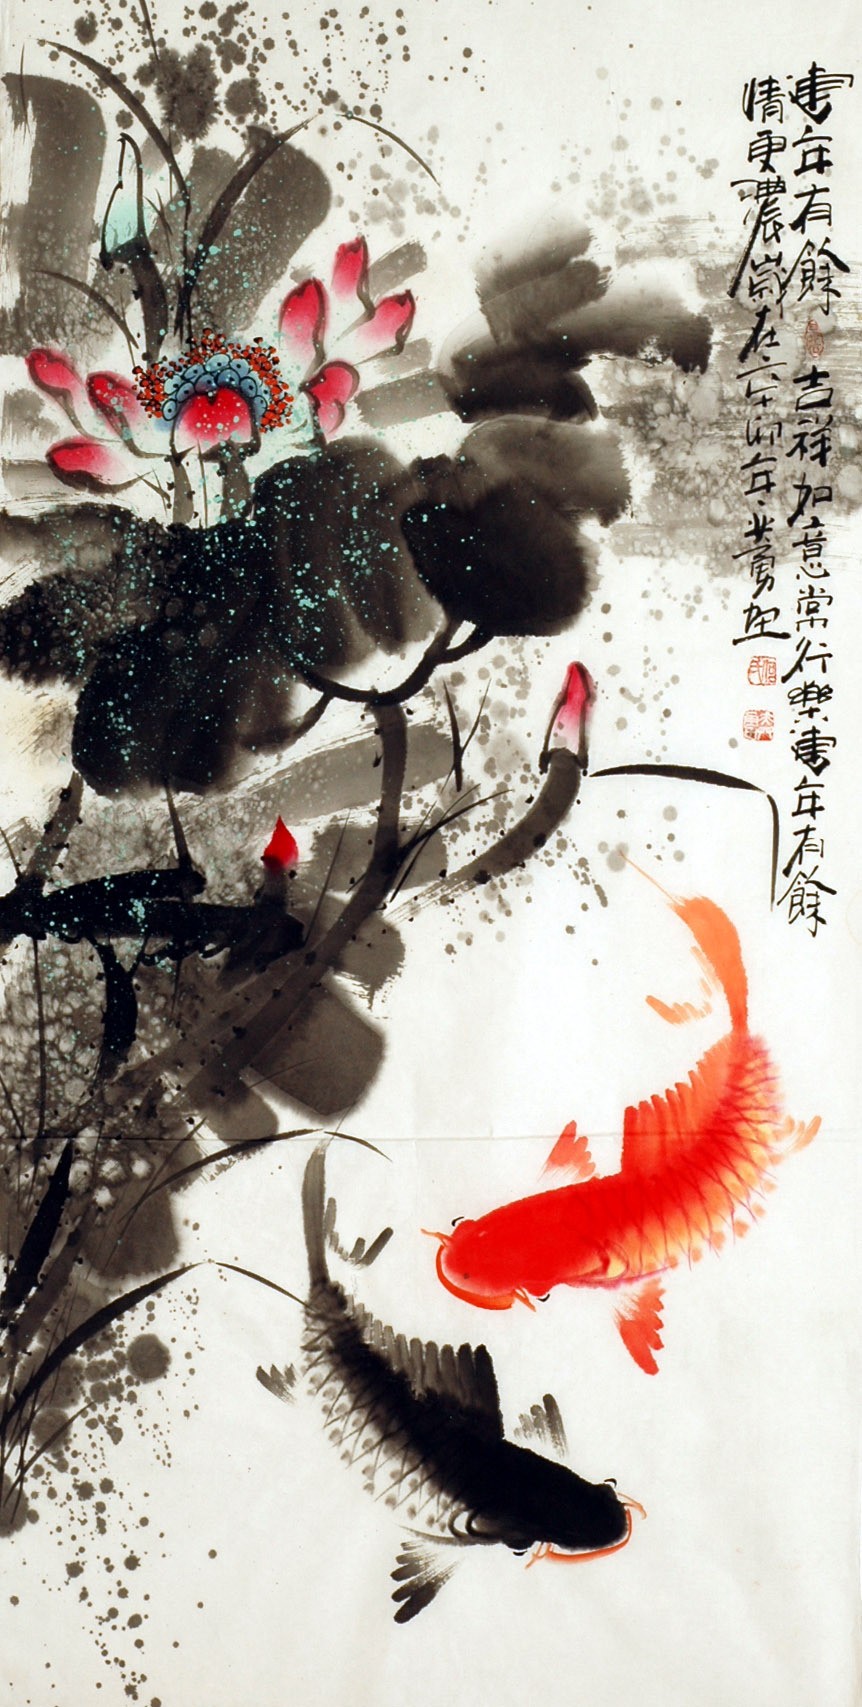 連年有餘 吉祥如意常行樂連年有餘
情更濃歲在辛卯年 勇